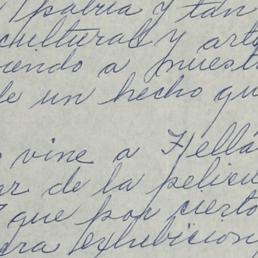 patria y tan
cultural y art
iendo a nuest
de un hecho qu
vine a Hella
ar de la pelicu
que por cierto
ra exhibicion